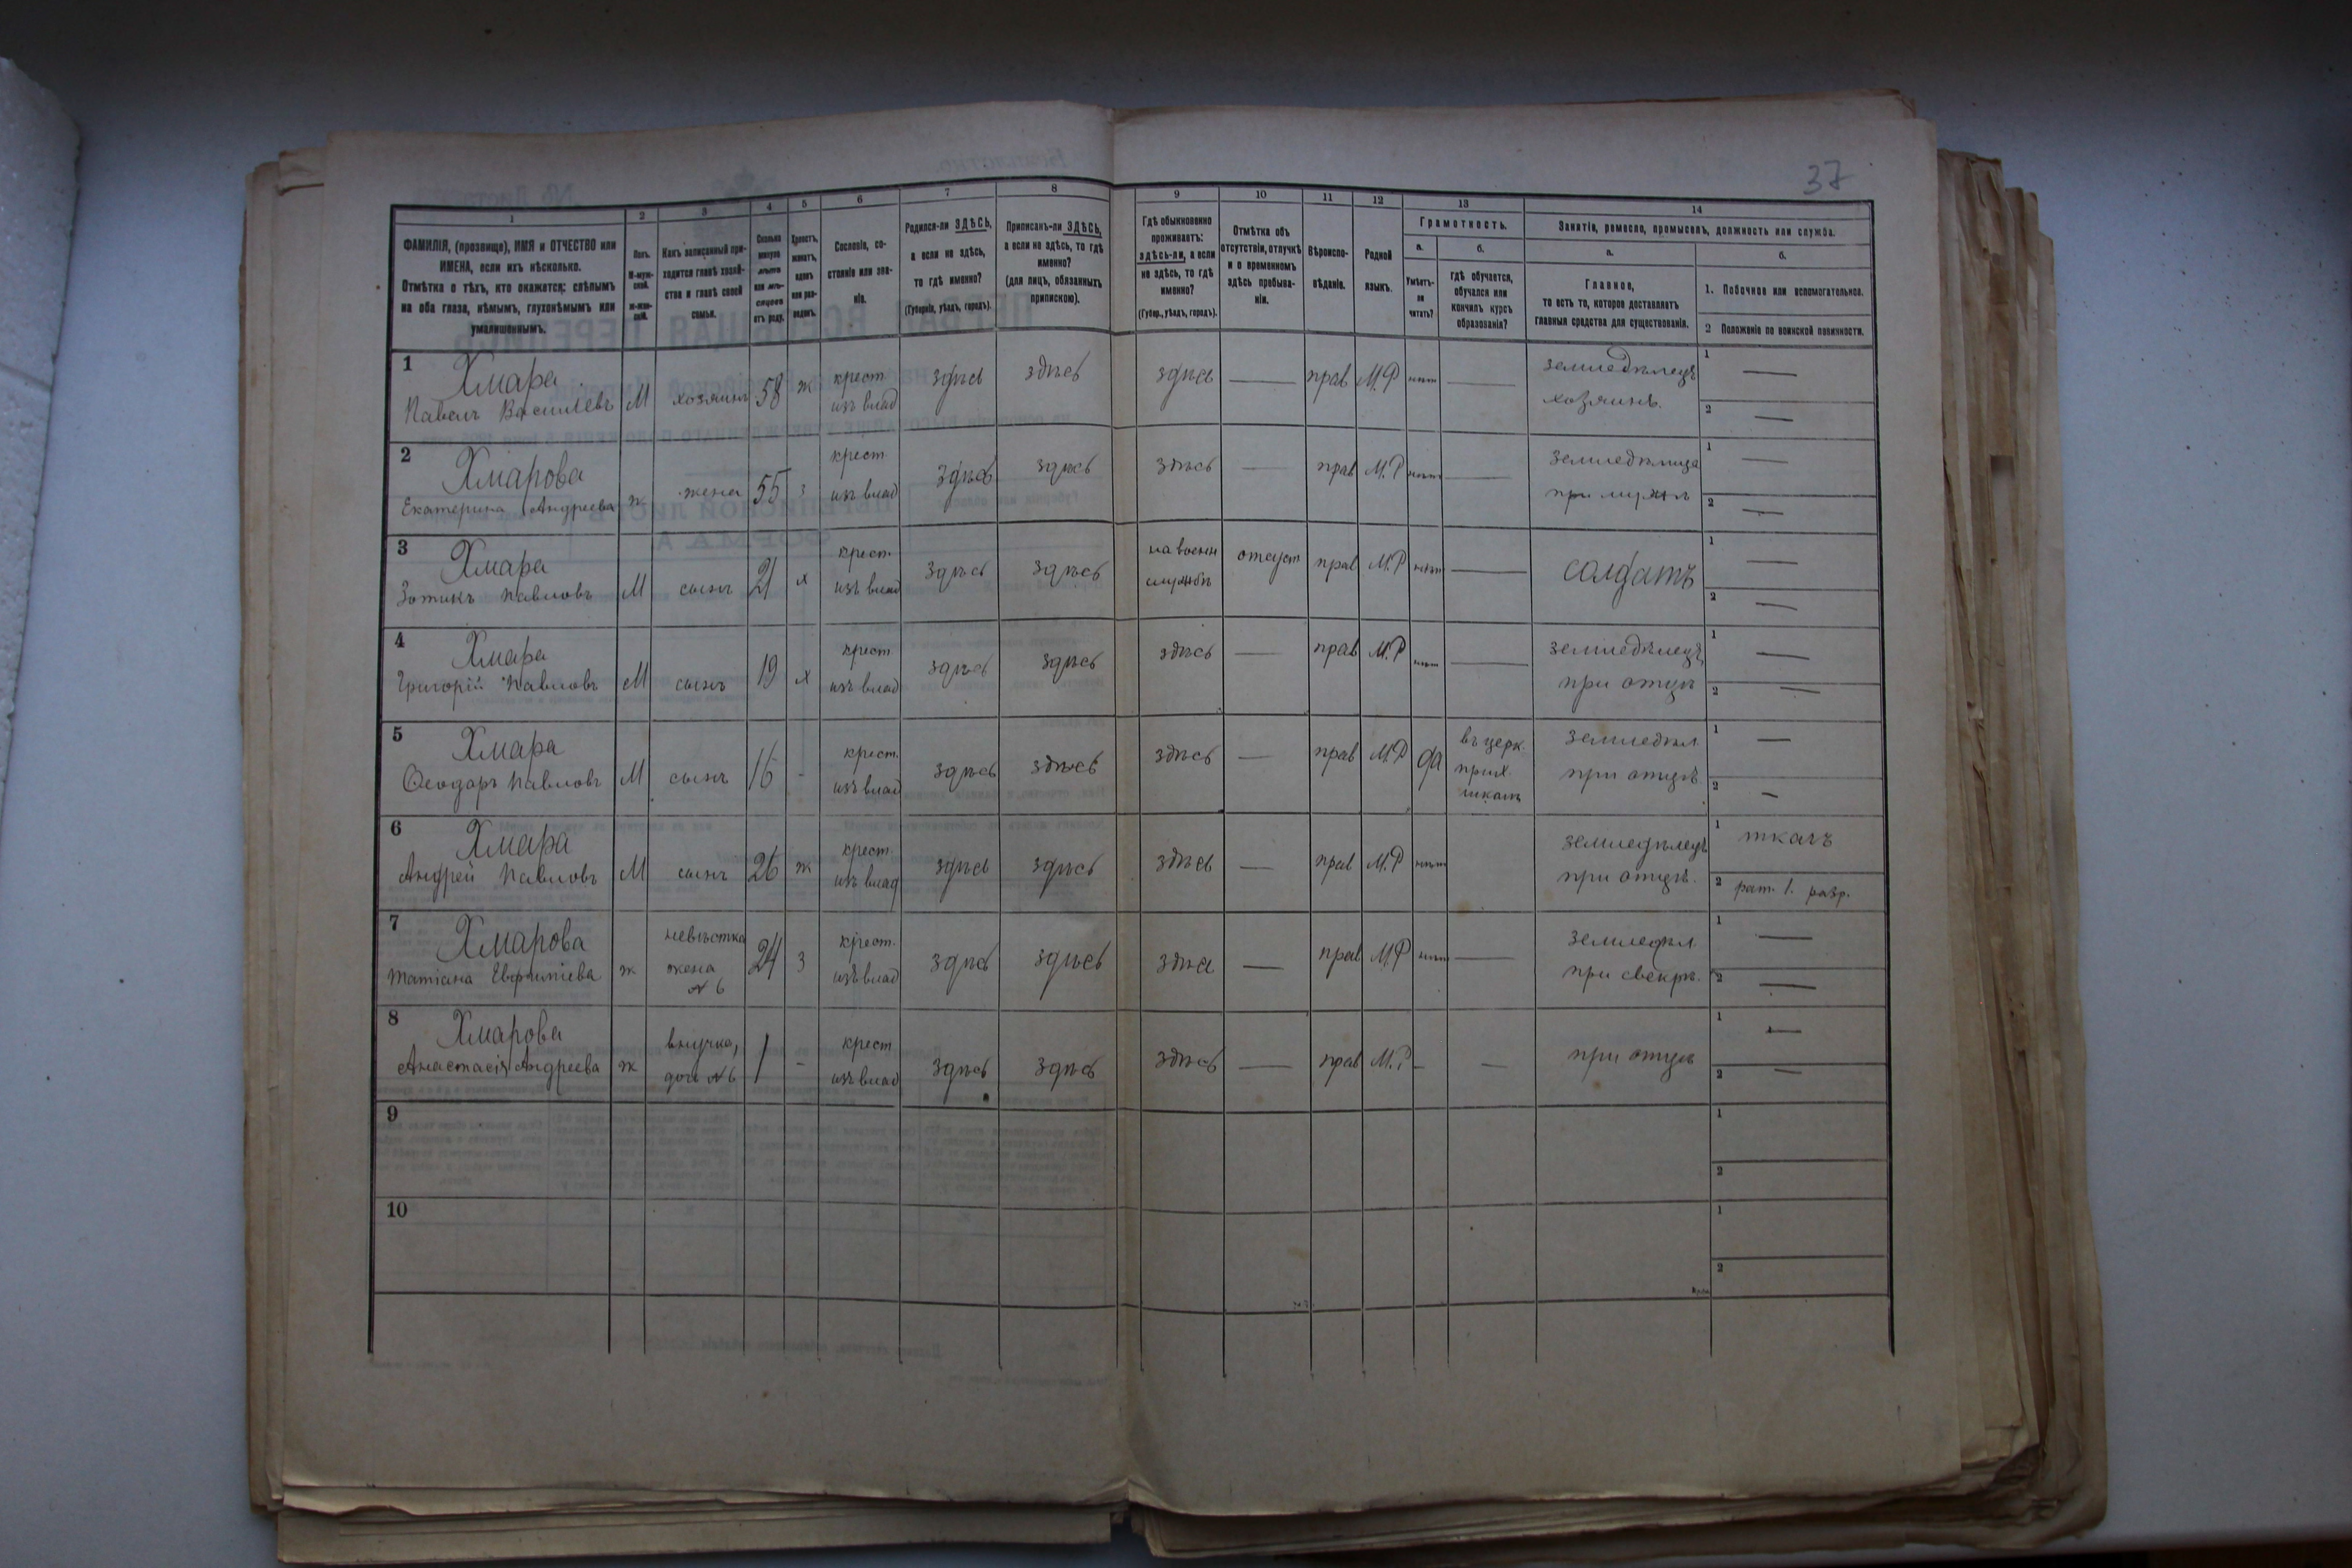 37
1
2
3
4
5
6
7
8
9
10
11
12
13
14
ФАМИЛІЯ, (прозвище), ИМЯ и ОТЧЕСТВО или
ИМЕНА, если ихъ нѣсколько.
Отмѣтка о тѣхъ, кто окажется: слѣпымъ
на оба глаза, нѣмымъ, глухонѣмымъ или
умалишеннымъ.
Полъ.
М-муж-
ской.
Ж-жен-
скій.
Какъ записанный при-
ходится главѣ хозяй-
ства и главѣ своей
семьи.
Сколько
минуло
лѣтъ
или мѣ-
сяцевъ
отъ роду.
Холостъ,
женатъ,
вдовъ
или раз-
веденъ.
Сословіе, со-
стояніе или зва-
ніе.
Родился-ли ЗДѢСЬ,
а если не здѣсь,
то гдѣ именно?
(Губернія, уѣздъ, городъ).
Приписанъ-ли ЗДѢСЬ,
а если не здѣсь, то гдѣ
именно?
(для лицъ, обязанныхъ
припискою).
Гдѣ обыкновенно
проживаетъ:
здѣсь-ли, а если
не здѣсь, то гдѣ
именно?
(Губер., уѣздъ, городъ).
Отмѣтка объ
отсутствіи, отлучкѣ
и о временномъ
здѣсь пребыва-
ніи.
Вѣроиспо-
вѣданіе.
Родной
языкъ.
Грамотность.
а.
Умѣетъ-
ли
читать?
б.
гдѣ обучается,
обучался или
кончилъ курсъ
образованія?
Занятіе, ремесло, промыселъ, должность или служба.
а.
Главное,
то есть то, которое доставляетъ
главныя средства для существованія.
б.
1. Побочное или вспомогательное.
2 Положеніе по воинской повинности.
1 Хмара крест. земледѣлецъ 1 —
Павелъ Васильевъ М хозяинъ 58 ж изъ влад здѣсь здѣсь здѣсь — прав М.Р нѣтъ — хозяинъ. 2 —
2 Хмарова крест земледѣлица 1 —
Екатерина Андреева ж жена 55 з изъ влад здѣсь здѣсь здѣсь — прав М.Р нѣтъ — при мужѣ 2 —
3 Хмара крест. на военн 1 —
Зотикъ Павловъ М сынъ 21 х изъ влад здѣсь здѣсь службѣ отсуст прав М.Р нѣтъ — солдатъ 2 —
4 Хмара крест земледѣлецъ 1 —
Григорій Павловъ М сынъ 19 х изъ влад здѣсь здѣсь здѣсь — прав М.Р нѣтъ — при отцѣ 2 —
5 Хмара крест. въ церк. земледѣл 1 —
Ѳеодоръ Павловъ М сынъ 16 - изъ влад здѣсь здѣсь здѣсь — прав М.Р да прих. при отцѣ 2 —
6 Хмара крест. земледѣлецъ 1 ткачъ
Андрей Павловъ М сынъ 26 ж изъ влад здѣсь здѣсь здѣсь — прав М.Р нѣтъ при отцѣ. 2 рат. 1. разр.
7 Хмарова невѣстка крест. земледѣл 1 —
Татіана Евфиміева ж жена 24 з изъ влад здѣсь здѣсь здѣсь — прав М.Р нѣтъ — при свекрѣ. 2 —
№ 6
8 Хмарова внучка, крест 1 —
Анастасія Андреева ж дочь № 6 1 - изъ влад здѣсь здѣсь здѣсь — прав М.Р — — при отцѣ 2 —
9 1
2
10 1
2